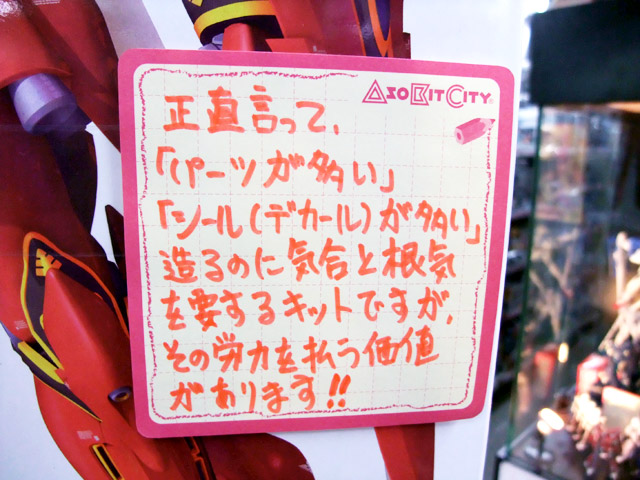 ASOBITCITY
正直言って、
「パーツが多い」
「シール(デカール)が多い」
造るのに気合と根気
を要するキットですが、
その労力を払う価値
があります!!